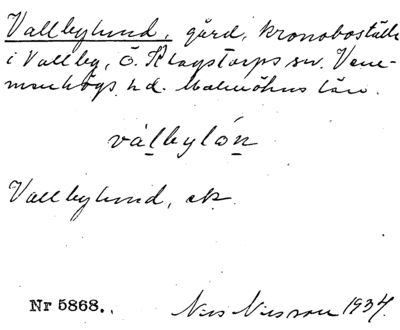 Vallbylund, gård, kronoboställe
i Vallby, Ö. Klagstorps sn. Vem-
menhögs hd. Malmöhus län.
válbylón
Vallbylund, ek.
Nr 5868. Nils Nilsson 1937.